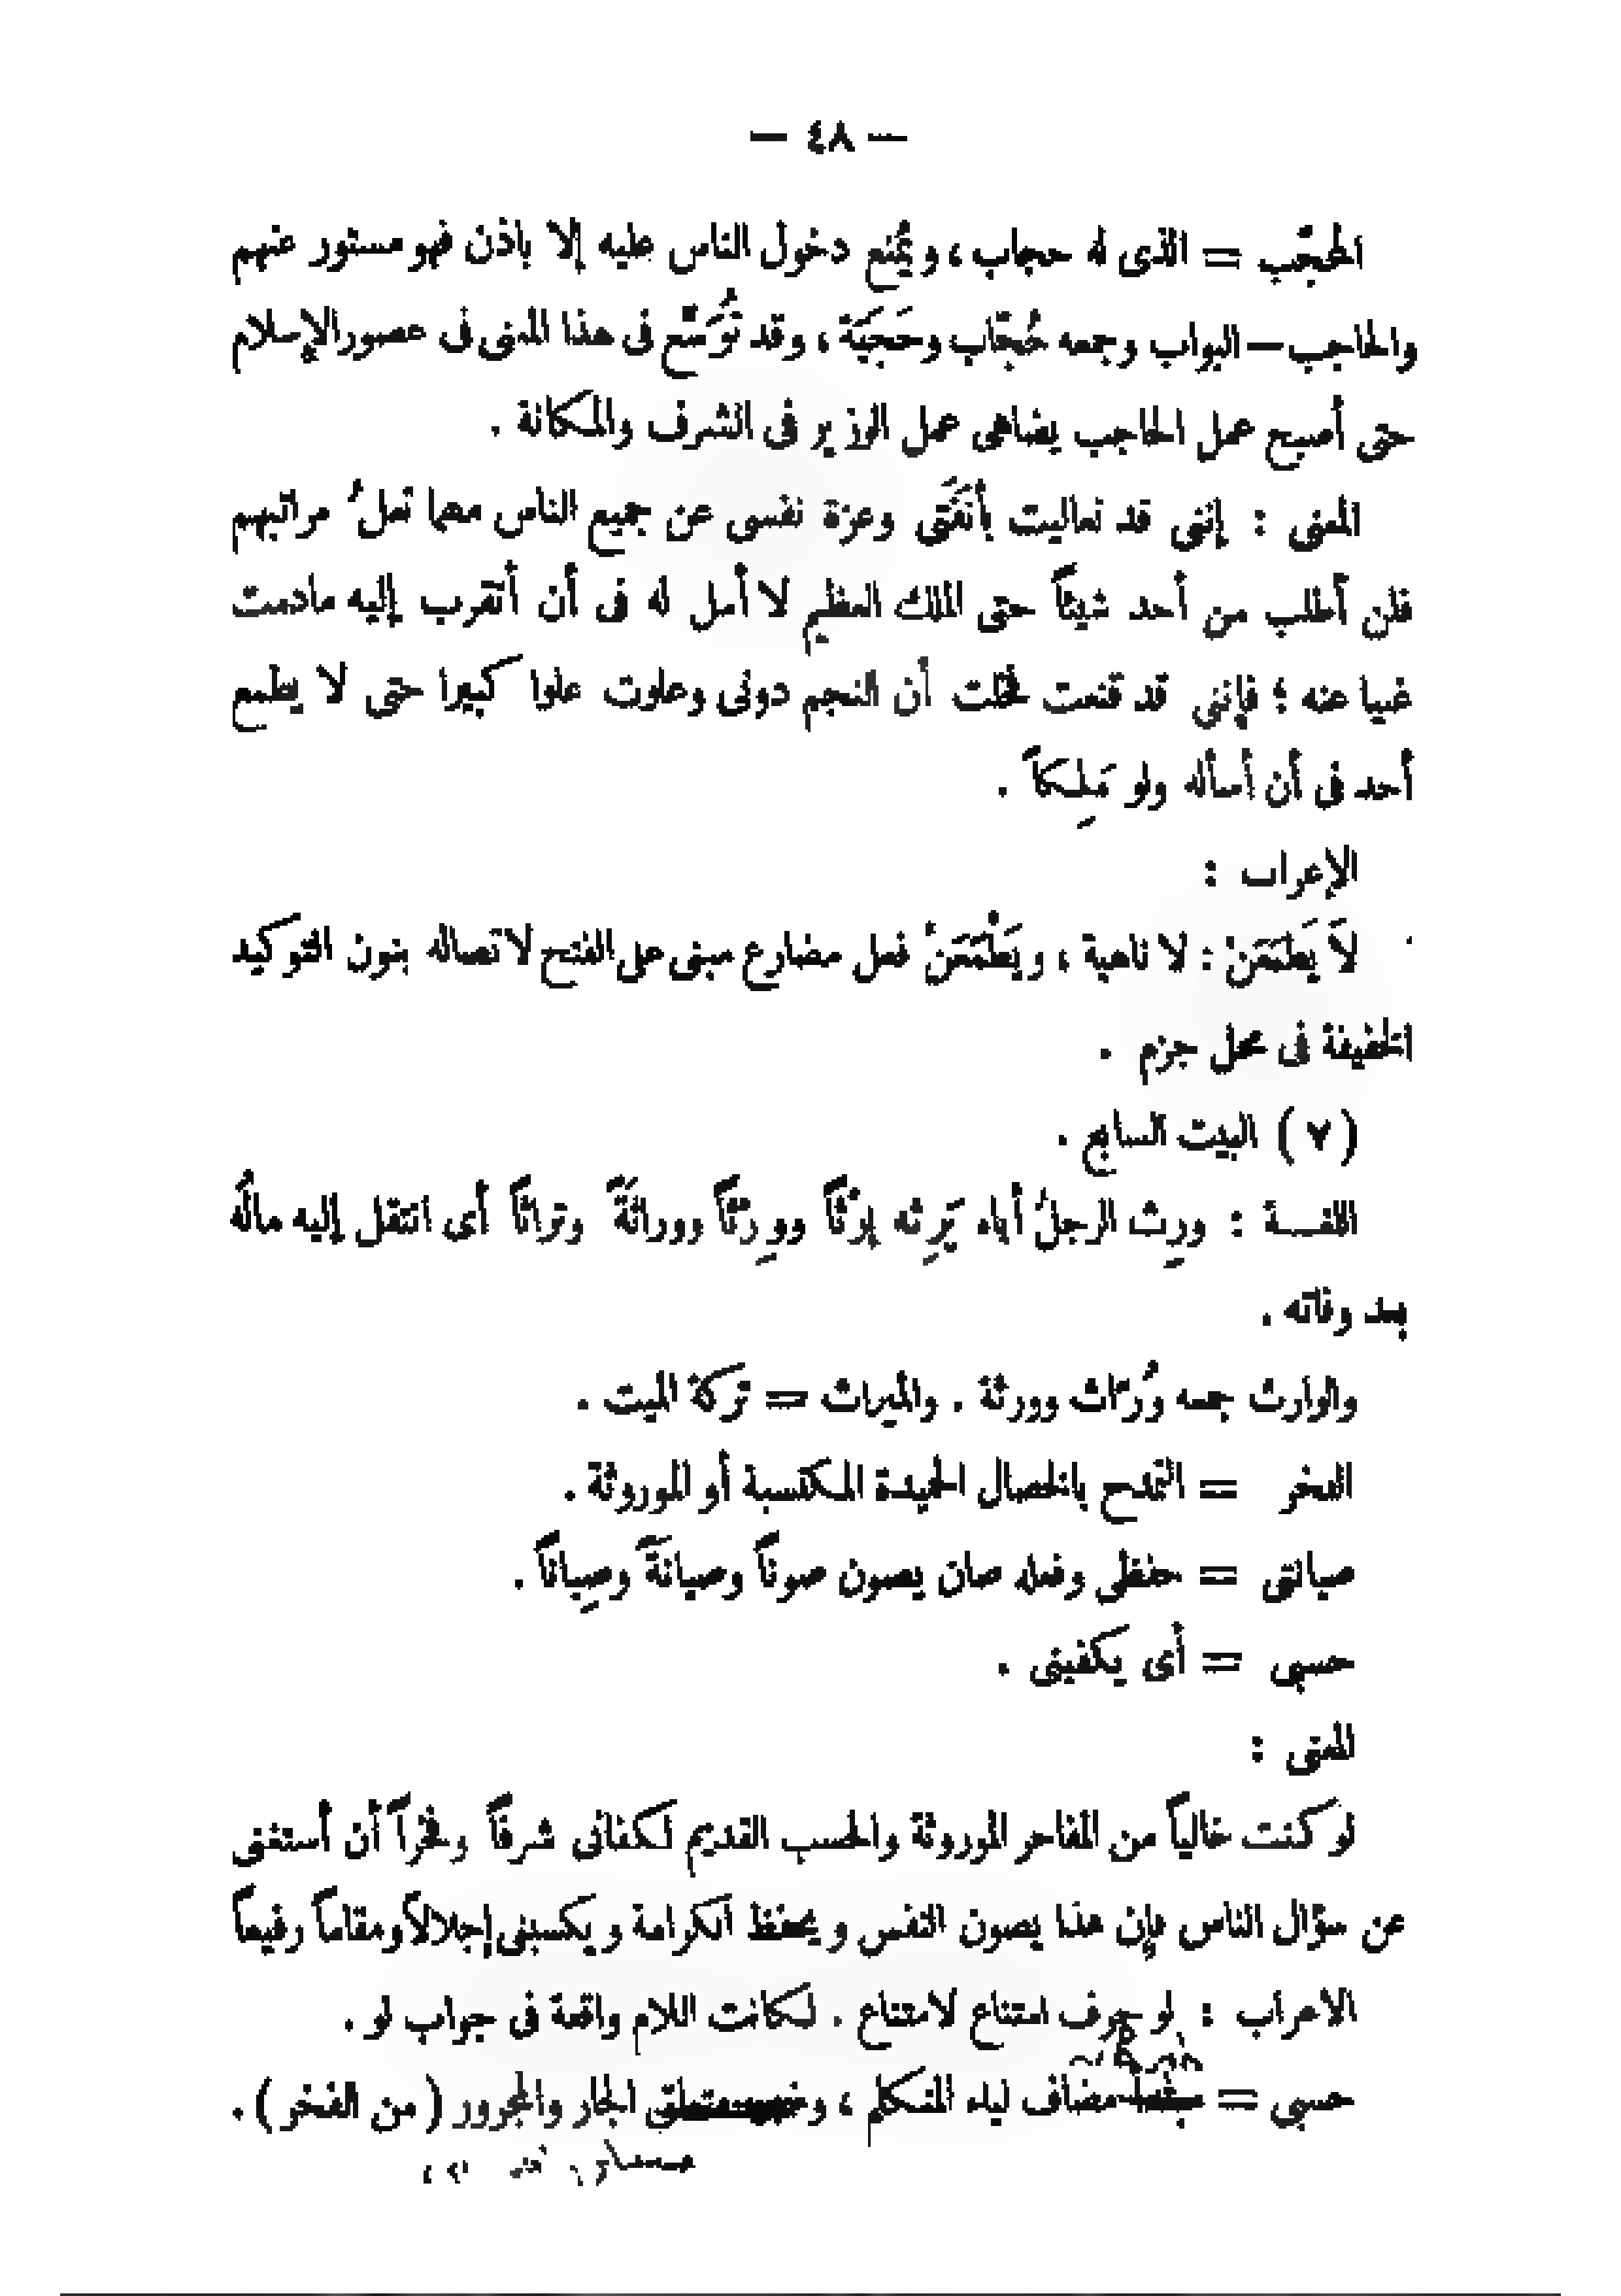 — ٤٨ —
المحجّب = الذى له حجاب ، ويُمنع دخول الناس عليه إلا بإذن فهو مستور عنهم
والحاجب — البواب وجمعه حُجّاب وحَجَبَة ، وقد تُوُسّع فى هذا المعنى فى عصور الإسلام
حتى أصبح عمل الحاجب يضاهى عمل الوزير فى الشرف والمكانة .
المعنى : إننى قد تعاليت بأنَفَتى وعزة نفسى عن جميع الناس مهما تعلُ مراتبهم
فلن أطلب من أحد شيئاً حتى الملك العظيم لا أمل له فى أن أتقرب إليه مادمت
غنيا عنه ؛ فإننى قد قنعت فخلت أن النجم دونى وعلوت علوا كبيرا حتى لا يطمع
أحد فى أن أسأله ولو مَلِكاً .
الإعراب :
لاَ يَطمَعَنْ : لا ناهية ، ويَطْمَعَنْ فعل مضارع مبنى على الفتح لاتصاله بنون التوكيد
الخفيفة فى محل جزم .
( ٧ ) البيت السابع .
اللغـــة : ورِث الرجلُ أباه يَرِثه إرْثاً ووِرْثاً ووراثَةً وتراثاً أى انتقل إليه مالُه
بعد وفاته .
والوارث جمعه وُرّاث وورثة . والميراث = تركة الميت .
الفخر = التمدح بالخصال الحميدة المكتسبة أو الموروثة .
صيانتى = حفظى وفعله صان يصون صوناً وصيانَةً وصِياناً .
حسبى = أى يكفينى .
المعنى :
لو كنت خالياً من المفاخر الموروثة والحسب القديم لكفانى شرفاً وفخراً أن أستغنى
عن سؤال الناس فإن هذا يصون النفس ويحفظ الكرامة ويكسبنى إجلالاً ومقاماً رفيعاً
الاعراب : لو حرف امتناع لامتناع . لكانت اللام واقعة فى جواب لو .
حسبى = مضاف لياء المتكلم ، الجار والمجرور ( من الفخر ) .